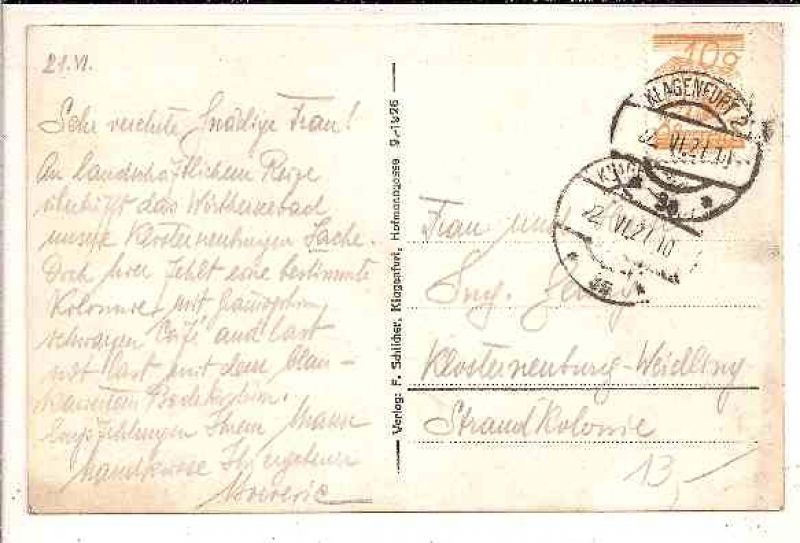 21.VI.
Sehr verehrte Gnädige Frau!
An landschaftlichem Reize
das Wörtherseebad
unsere Klosterneuburger Sache.
Doch hier fehlt eine bestimmte
Kolonie, mit Gramophon,
schwarzen Café, and last
not least mit dem blau-
Badekostüm.
Empfehlungen Ihrem Manne
Handküsse Ihr ergebener
Verlag: F. Schlicher, Klagenfurt, Hofmanngasse 9,-1926
10g
KLAGENFURT 2
22.VI.27.10
* 2a *
22.VI.27.10
Frau und Herr
Ing.
Klosterneuburg-Weidling
Strandkolonie
13,-